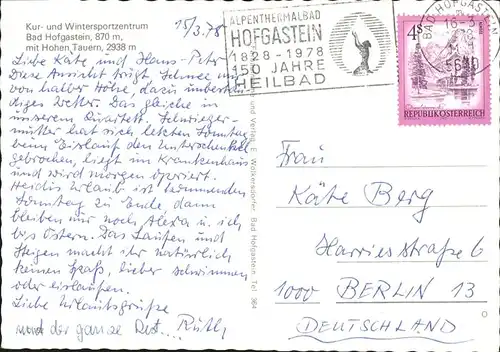 Kur- und Wintersportzentrum
Bad Hofgastein, 870 m,
mit Hohen Tauern, 2938 m
15/3.78
Liebe Käte, und Hans-Peter
Diese Ansicht trügt, Schnee nur
von halber Höhe, dazu unbestän
diges Wetter. Das gleiche in
unserem Quartett. Schwieger-
mutter hat sich letzten Sonntag
beim Eislauf den Unterschenkel
gebrochen, liegt im Krankenhaus
und wird morgen operiert.
Heidis Urlaub ist kommenden
Sonntag zu Ende, dann
bleiben nur noch Alexa u. ich
bis Ostern. Das Laufen und
Steigen macht ihr natürlich
keinen Spaß, lieber schwimmen
oder eislaufen.
Liebe Urlaubsgrüße
und der ganze Rest... Ruth
ALPENTHERMALBAD
HOFGASTEIN
1828-1978
150 JAHRE
HEILBAD
BAD HOFGASTEIN
16-3
5630
4S
REPUBLIK ÖSTERREICH
und Verlag: E. Bad Hofgastein, Tel. 364
Frau
Käte Berg
Harriesstraße 6
1000 BERLIN 13
DEUTSCHLAND